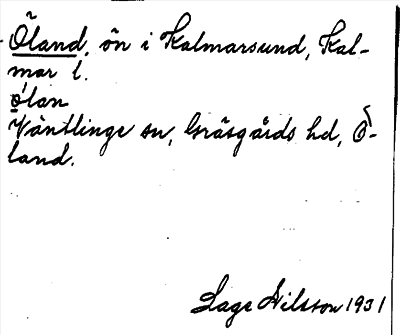 Öland, ön i Kalmarsund, Kal-
mar l.
ølan
Ventlinge sn, Gräsgårds hd, Ö-
land.
Lage Nilsson 1931